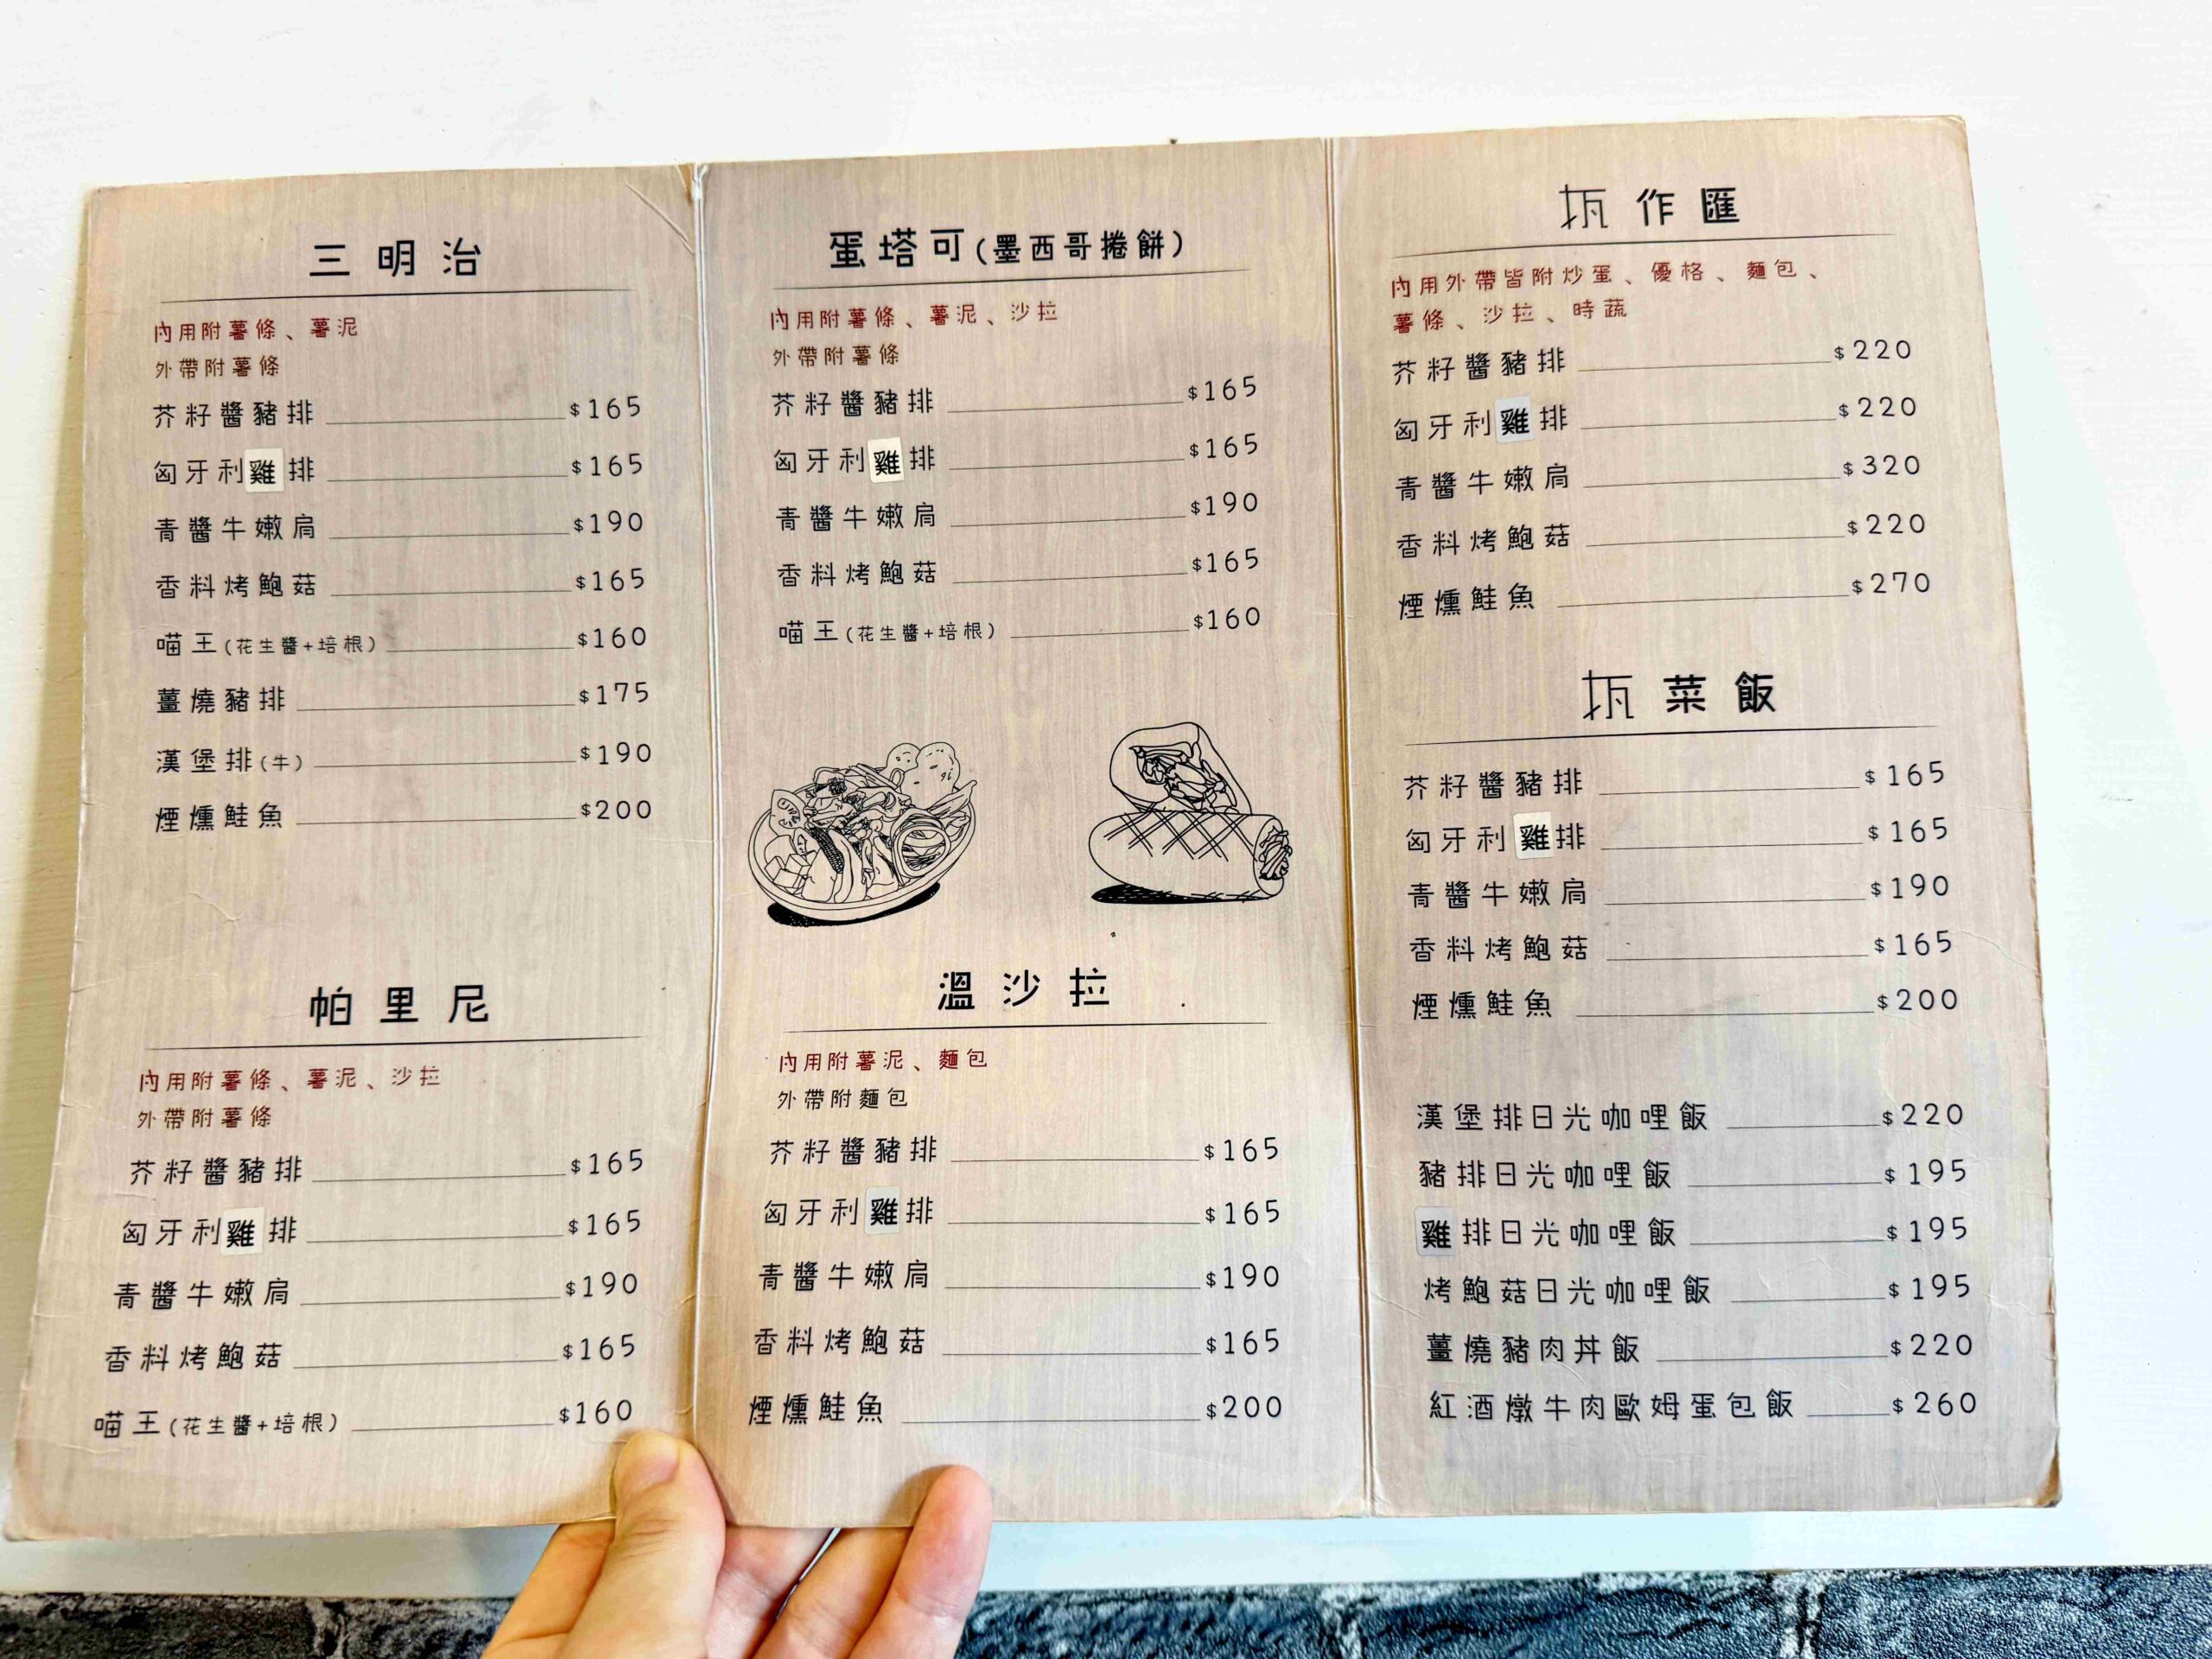 三明治
內用附薯條、薯泥
外帶附薯條
芥籽醬豬排 $165
匈牙利雞排 $165
青醬牛嫩肩 $190
香料烤鮑菇 $165
喵王(花生醬+培根) $160
薑燒豬排 $175
漢堡排(牛) $190
煙燻鮭魚 $200
帕里尼
內用附薯條、薯泥、沙拉
外帶附薯條
芥籽醬豬排 $165
匈牙利雞排 $165
青醬牛嫩肩 $190
香料烤鮑菇 $165
喵王(花生醬+培根) $160
蛋塔可(墨西哥捲餅)
內用附薯條、薯泥、沙拉
外帶附薯條
芥籽醬豬排 $165
匈牙利雞排 $165
青醬牛嫩肩 $190
香料烤鮑菇 $165
喵王(花生醬+培根) $160
溫沙拉
內用附薯泥、麵包
外帶附麵包
芥籽醬豬排 $165
匈牙利雞排 $165
青醬牛嫩肩 $190
香料烤鮑菇 $165
煙燻鮭魚 $200
作匯
內用外帶皆附炒蛋、優格、麵包、
薯條、沙拉、時蔬
芥籽醬豬排 $220
匈牙利雞排 $220
青醬牛嫩肩 $320
香料烤鮑菇 $220
煙燻鮭魚 $270
菜飯
芥籽醬豬排 $165
匈牙利雞排 $165
青醬牛嫩肩 $190
香料烤鮑菇 $165
煙燻鮭魚 $200
漢堡排日光咖哩飯 $220
豬排日光咖哩飯 $195
雞排日光咖哩飯 $195
烤鮑菇日光咖哩飯 $195
薑燒豬肉丼飯 $220
紅酒燉牛肉歐姆蛋包飯 $260